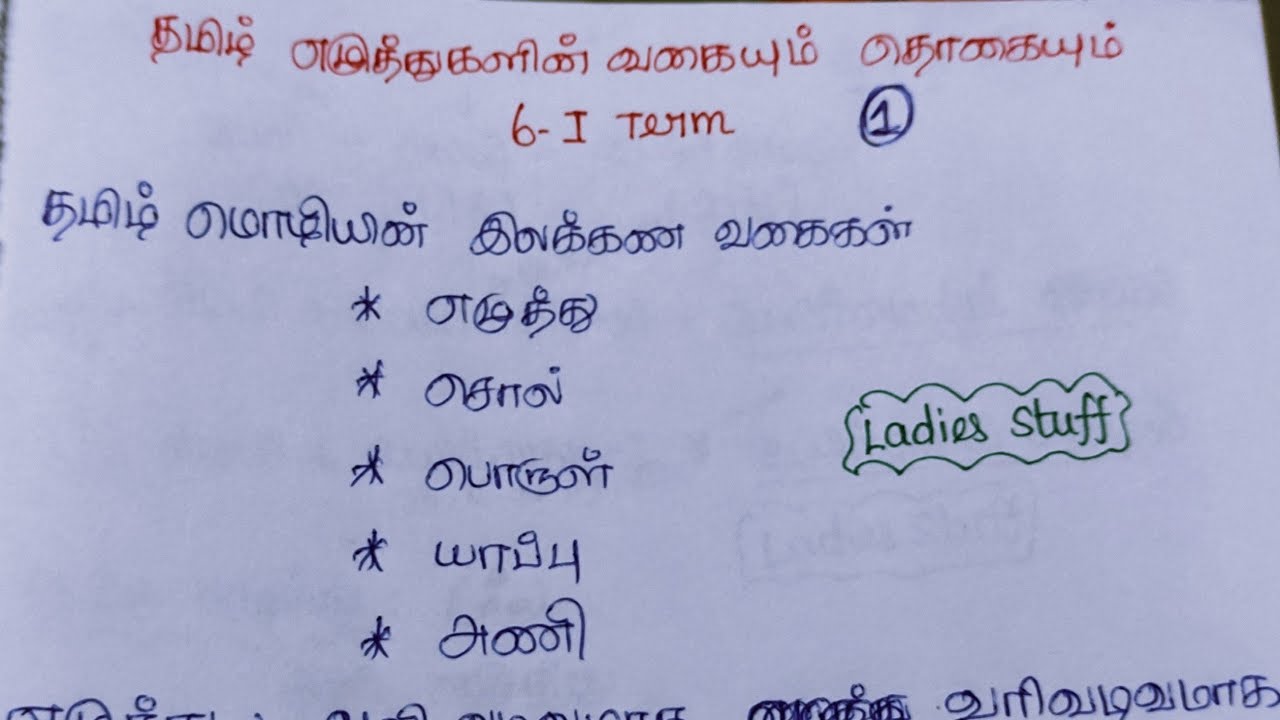 தமிழ் எழுத்துகளின் வகையும் தொகையும்
6- I Term 1
தமிழ் மொழியின் இலக்கண வகைகள்
* எழுத்து
* சொல்
Ladies Stuff
* பொருள்
* யாப்பு
* அணி
வரிவடிவமாக